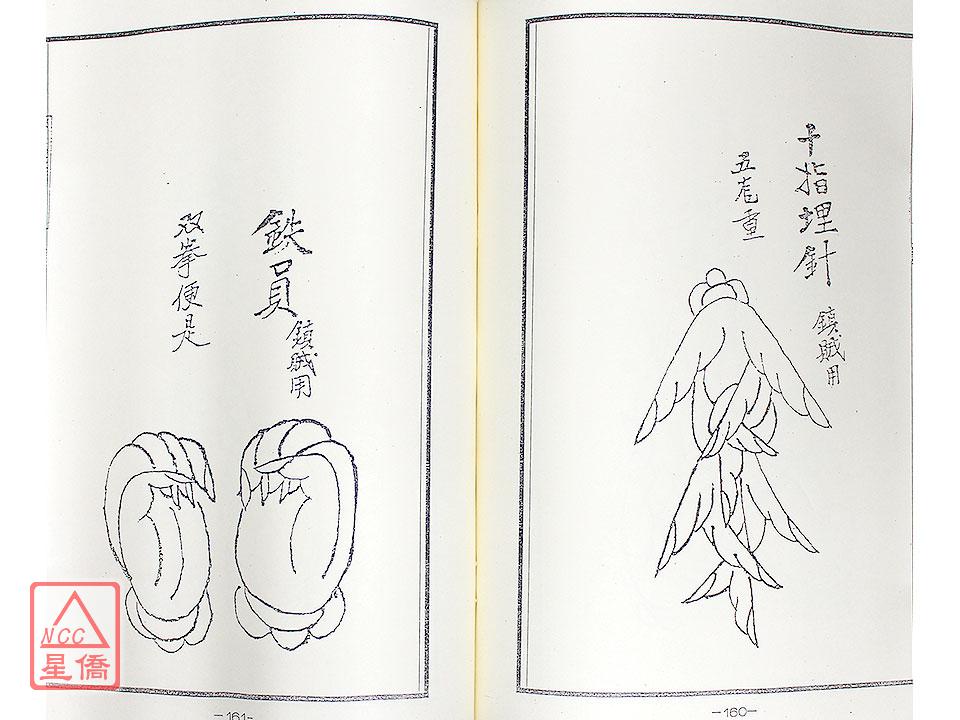 十指埋針
鎮賊用
五雹重
鉄員
鎮賊用
双拳便是
-160-
-161-
NCC
星僑